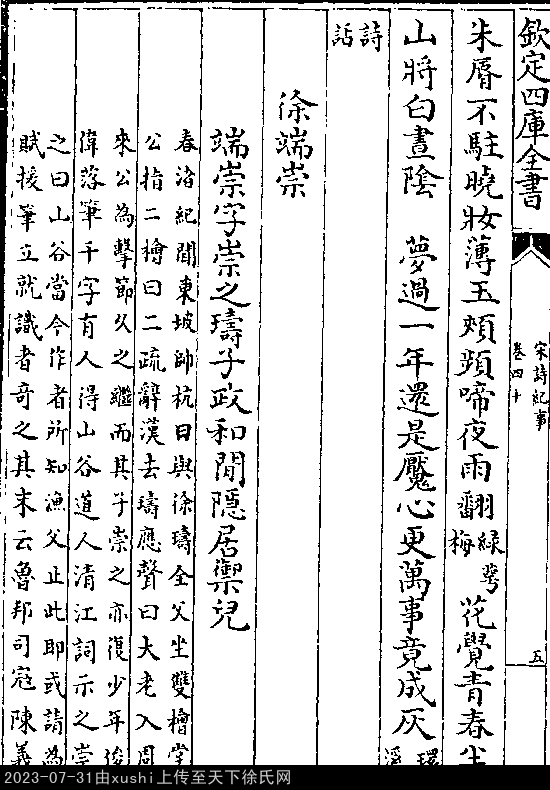 欽定四庫全書
宋詩紀事
卷四十
五
朱脣不駐曉妝薄玉頰頻啼夜雨翻
緑萼
梅
花覺青春半
山將白晝陰 夢過一年還是魘心更萬事竟成灰
環
溪
詩
話
徐端崇
端崇字崇之璹子政和間隠居禦兒
春渚紀聞東坡帥杭日與徐璹全父坐雙檜堂
公指二檜曰二疏辭漢去璹應聲曰大老入周
來公為擊節久之繼而其子崇之亦復少年俊
偉落筆千字有人得山谷道人清江詞示之崇
之曰山谷當今作者所知漁父止此即或請為
賦援筆立就識者奇之其末云魯邦司寇陳義
2023-07-31由xushi上传至天下徐氏网